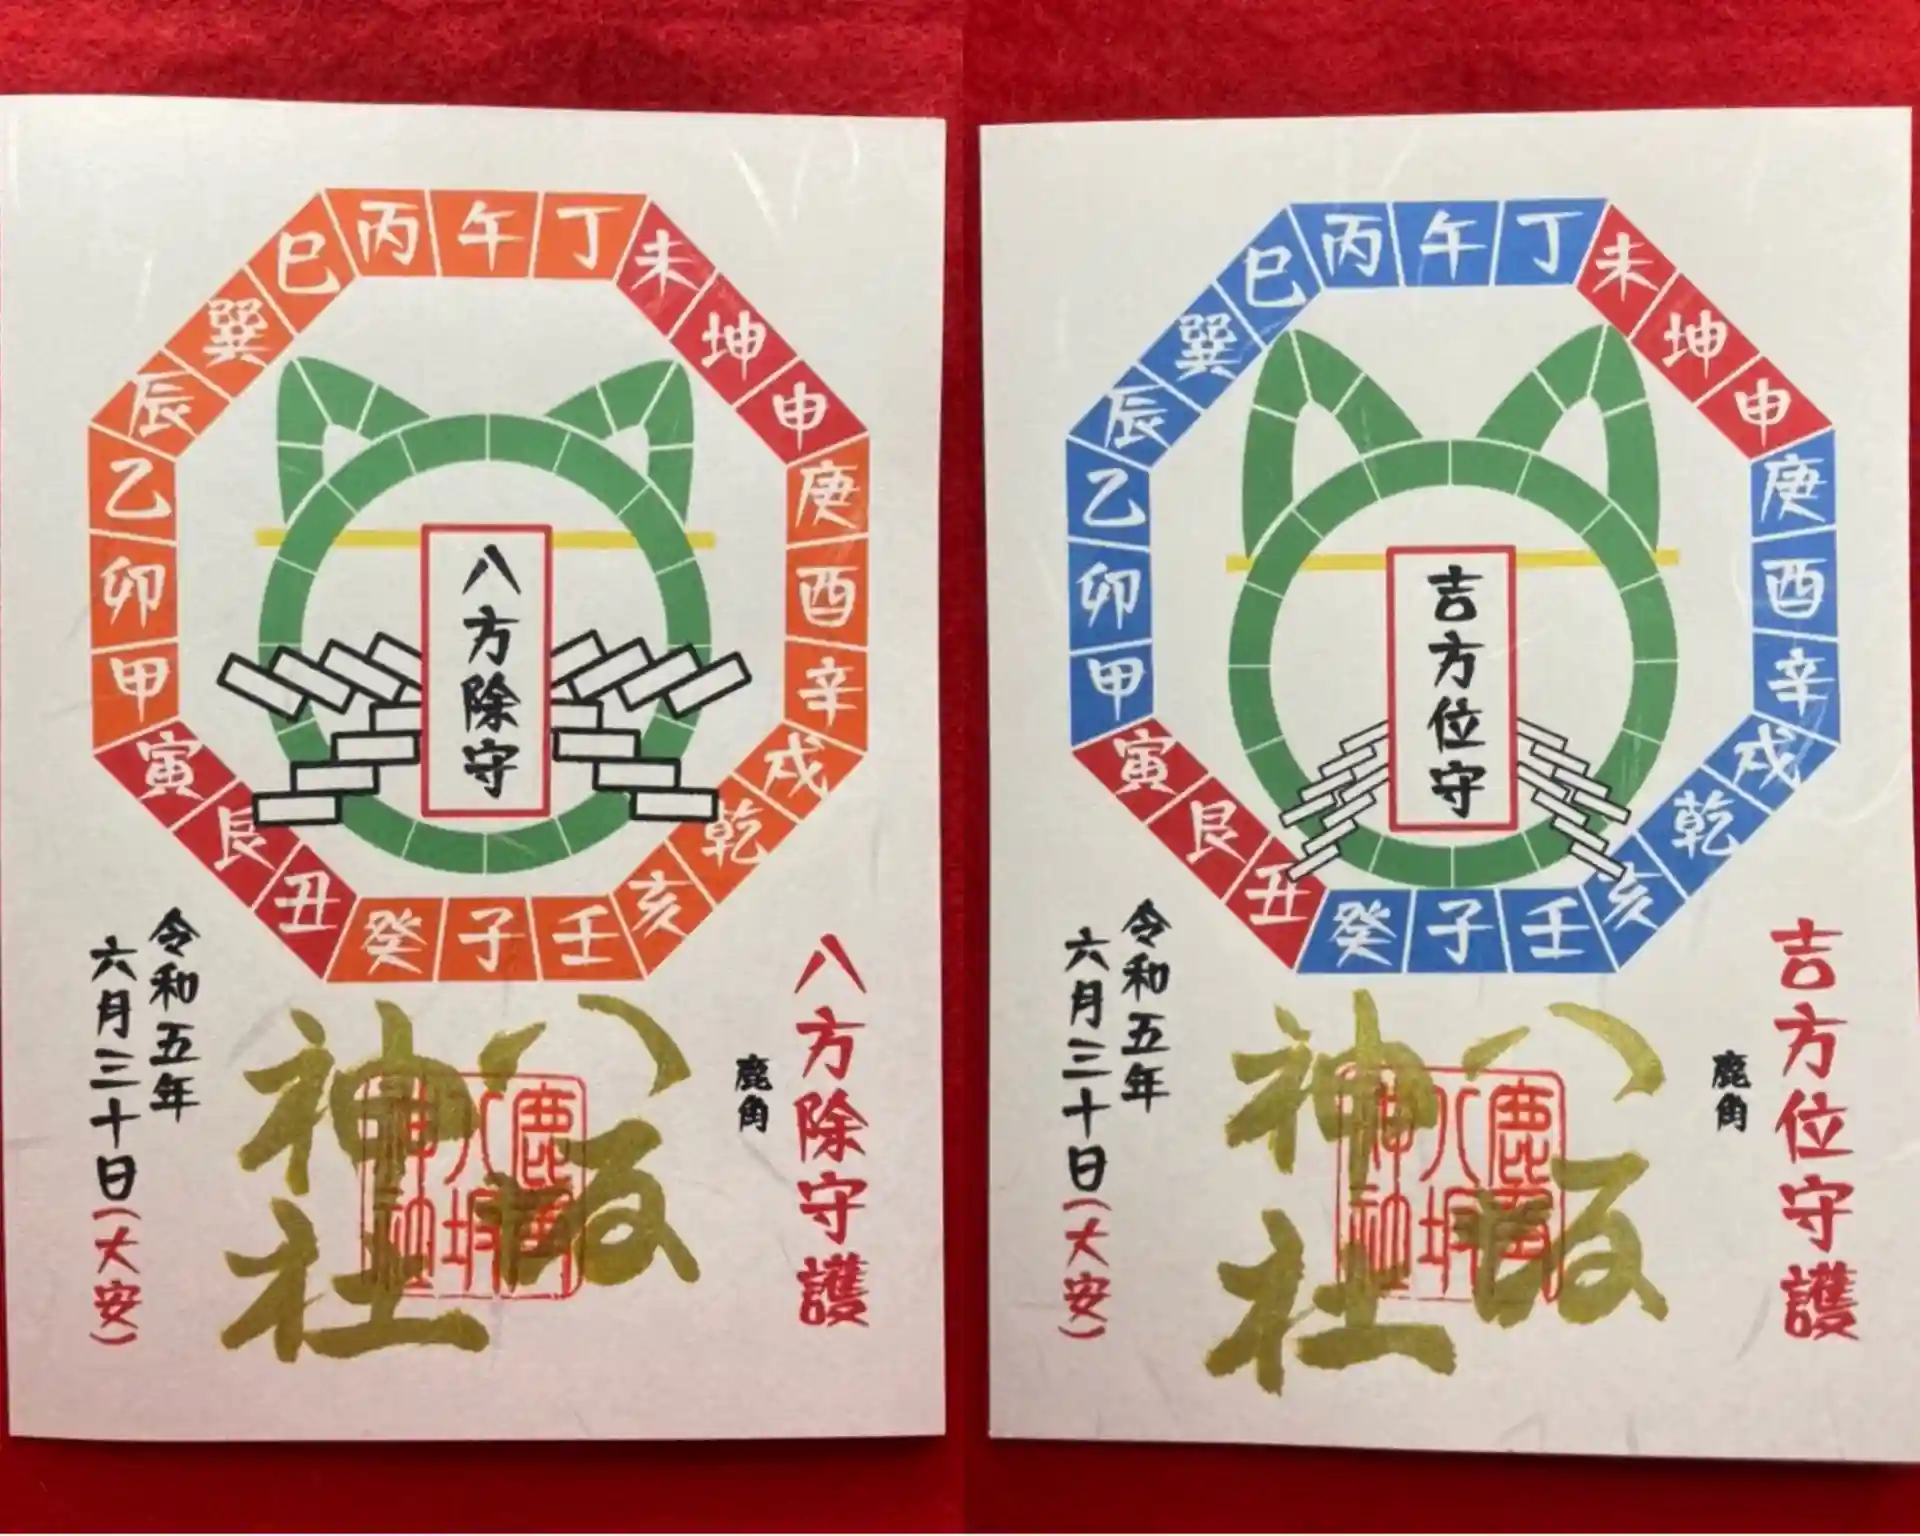 丙
午
丁
未
坤
申
庚
酉
辛
戌
乾
亥
壬
子
癸
丑
艮
寅
甲
卯
乙
辰
巽
巳
八方除守
八方除守護
鹿角
八坂
神社
鹿角
八坂
神社
令和五年
六月三十日(大安)
丙
午
丁
未
坤
申
庚
酉
辛
戌
乾
亥
壬
子
癸
丑
艮
寅
甲
卯
乙
辰
巽
巳
吉方位守
吉方位守護
鹿角
八坂
神社
鹿角
八坂
神社
令和五年
六月三十日(大安)